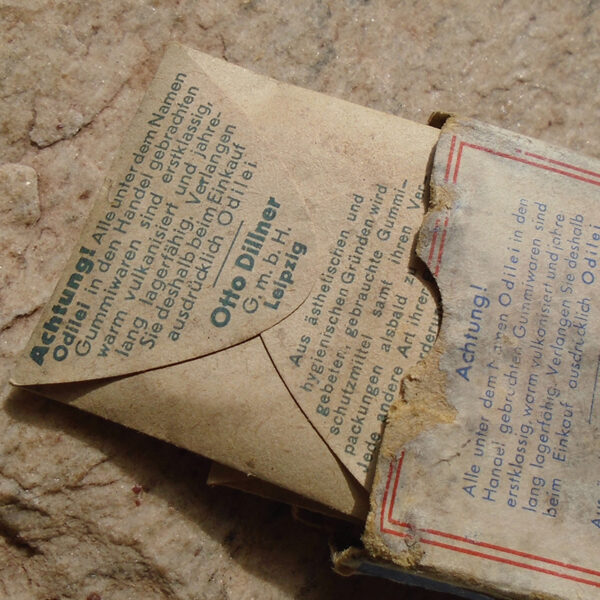 Achtung! Alle unter dem Namen
Odilei in den Handel gebrachten
Gummiwaren sind erstklassig,
warm vulkanisiert und jahre-
lang lagerfähig. Verlangen
Sie deshalb beim Einkauf
ausdrücklich Odilei
Otto Dillner
G.m.b.H.
Leipzig
Aus ästhetischen und
hygienischen Gründen wird
gebeten, gebrauchte Gummi-
schutzmittel samt ihren Ver
packungen alsbald
Jede andere Art ihrer
Achtung!
Alle unter dem Namen Odilei in den
Handel gebrachten Gummiwaren sind
erstklassig, warm vulkanisiert und jahre
lang lagerfähig. Verlangen Sie deshalb
beim Einkauf ausdrücklich Odilei